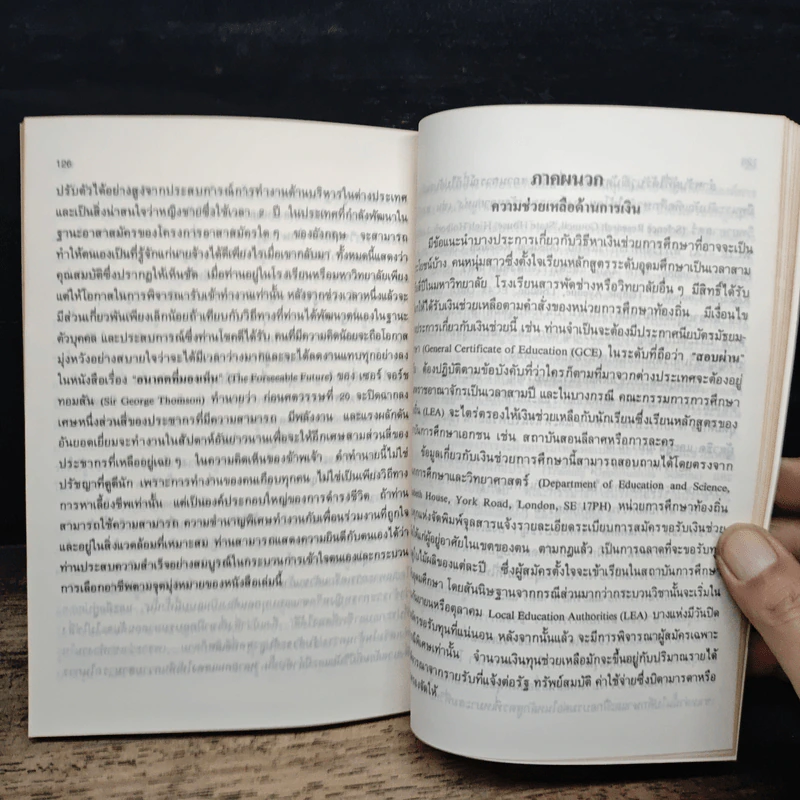 126
ปรับตัวได้อย่างสูงจากประสบการณ์การทำงานด้านบริหารในต่างประเทศ
และเป็นสิ่งน่าสนใจว่าหญิงชายซึ่งใช้เวลา ๑ ปี ในประเทศที่กำลังพัฒนาใน
ฐานะอาสาสมัครของโครงการอาสาสมัครใด ๆ ของอังกฤษ จะสามารถ
ทำให้ตนเองเป็นที่รู้จักแก่นายจ้างได้ดีเพียงไรเมื่อเขากลับมา ทั้งหมดนี้แสดงว่า
คุณสมบัติซึ่งปรากฏให้เห็นชัด เมื่อท่านอยู่ในโรงเรียนหรือมหาวิทยาลัยเพียง
แต่ให้โอกาสในการพิจารณารับเข้าทำงานเท่านั้น หลังจากช่วงเวลาหนึ่งแล้วจะ
มีส่วนเกี่ยวพันเพียงเล็กน้อยถ้าเทียบกับวิธีที่ทางที่ท่านได้พัฒนาตนเองในฐานะ
ตัวบุคคล และประสบการณ์ซึ่งท่านโชคดีได้รับ คนที่มีความคิดน้อยจะถือโอกาส
มุ่งหวังอย่างสบายใจว่าจะได้มีเวลาว่างมากและจะได้ลดงานแทบทุกอย่างลง
ในหนังสือเรื่อง "อนาคตที่มองเห็น" (The Forseeable Future) ของ เซอร์ จอร์ช
ทอมสัน (Sir George Thomson) ทำนายว่า ก่อนศตวรรษที่ 20 จะปิดฉากลง
เศษหนึ่งส่วนสี่ของประชากรที่มีความสามารถ มีพลังงาน และแรงผลักดัน
อันยอดเยี่ยมจะทำงานในสัปดาห์อันยาวนานเพื่อจะให้อีกเศษสามส่วนสี่ของ
ประชากรที่เหลืออยู่เฉย ๆ ในความคิดเห็นของข้าพเจ้า คำทำนายนี้ไม่ใช่
ปรัชญาที่ดูดีนัก เพราะการทำงานของคนเกือบทุกคน ไม่ใช่เป็นเพียงวิถีทาง
การหาเลี้ยงชีพเท่านั้น แต่เป็นองค์ประกอบใหญ่ของการดำรงชีวิต ถ้าท่าน
สามารถใช้ความสามารถ ความชำนาญพิเศษทำงานกับเพื่อนร่วมงานที่ถูกใจ
และอยู่ในสิ่งแวดล้อมที่เหมาะสม ท่านสามารถแสดงความยินดีกับตนเองได้ว่า
ท่านประสบความสำเร็จอย่างสมบูรณ์ในกระบวนการเข้าใจตนเองและกระบวน
การเลือกอาชีพตามจุดมุ่งหมายของหนังสือเล่มนี้
ภาคผนวก
ความช่วยเหลือด้านการเงิน
มีข้อแนะนำบางประการเกี่ยวกับวิธีหาเงินช่วยการศึกษาที่อาจจะเป็น
โยชน์บ้าง คนหนุ่มสาวซึ่งตั้งใจเรียนหลักสูตรระดับอุดมศึกษาเป็นเวลาสาม
ปีในมหาวิทยาลัย โรงเรียนสารพัดช่างหรือวิทยาลัยอื่น ๆ มีสิทธิ์ได้รับ
ให้ได้รับเงินช่วยเหลือตามคำสั่งของหน่วยการศึกษาท้องถิ่น มีเงื่อนไข
ประการเกี่ยวกับเงินช่วยนี้ เช่น ท่านจำเป็นจะต้องมีประกาศนียบัตรมัธยม-
(General Certificate of Education (GCE) ในระดับที่ถือว่า "สอบผ่าน"
ต้องปฏิบัติตามข้อบังคับที่ว่าใครก็ตามที่มาจากต่างประเทศจะต้องอยู่
ราชอาณาจักรเป็นเวลาสามปี และในบางกรณี คณะกรรมการการศึกษา
(LEA) จะไตร่ตรองให้เงินช่วยเหลือกับนักเรียนซึ่งเรียนหลักสูตรของ
ันการศึกษาเอกชน เช่น สถาบันสอนลีลาศหรือการละคร
ข้อมูลเกี่ยวกับเงินช่วยการศึกษานี้สามารถสอบถามได้โดยตรงจาก
การศึกษาและวิทยาศาสตร์ (Department of Education and Science,
House, York Road, London, SE 17PH) หน่วยการศึกษาท้องถิ่น
แห่งจัดพิมพ์จุลสารแจ้งรายละเอียดระเบียบการสมัครขอรับเงินช่วย
แก่ผู้อยู่อาศัยในเขตของตน ตามกฎแล้ว เป็นการฉลาดที่จะขอรับทุน
ใบไม้ผลิของแต่ละปี ซึ่งผู้สมัครตั้งใจจะเข้าเรียนในสถาบันการศึกษา
อุดมศึกษา โดยสันนิษฐานจากกรณีส่วนมากว่ากระบวนวิชานั้นจะเริ่มใน
กันยายนหรือตุลาคม Local Education Authorities (LEA) บางแห่งมีวันปิด
ขอรับทุนที่แน่นอน หลังจากนั้นแล้ว จะมีการพิจารณาผู้สมัครเฉพาะ
พิเศษเท่านั้น จำนวนเงินทุนช่วยเหลือมักจะขึ้นอยู่กับปริมาณรายได้
จากรายรับที่แจ้งต่อรัฐ ทรัพย์สมบัติ ค่าใช้จ่ายซึ่งบิดามารดาหรือ
จัดให้